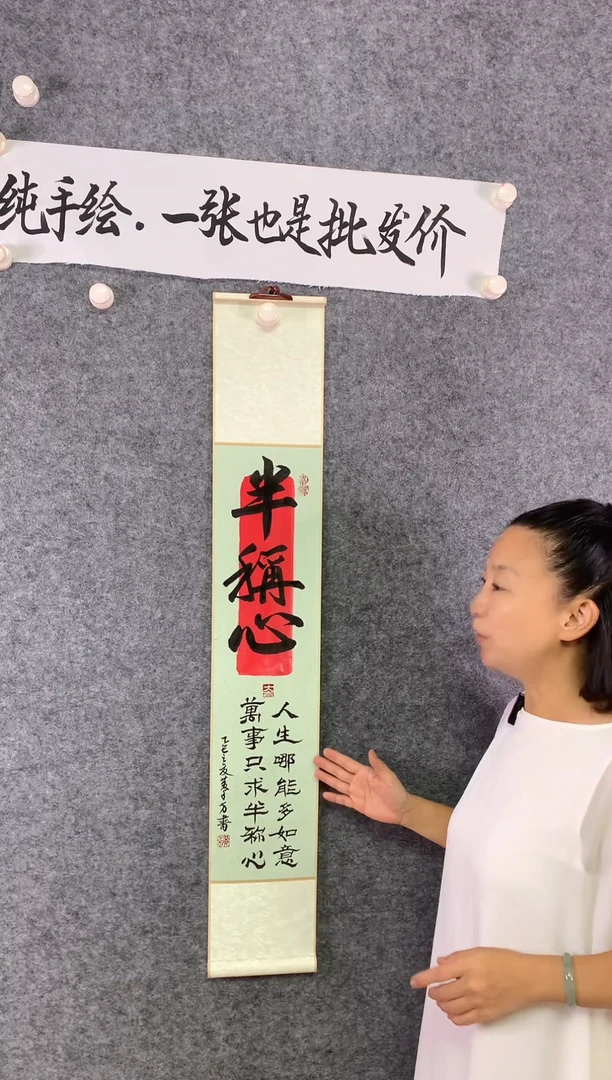 纯手绘.一张也是批发价
半稱心
人生哪能多如意
萬事只求半称心